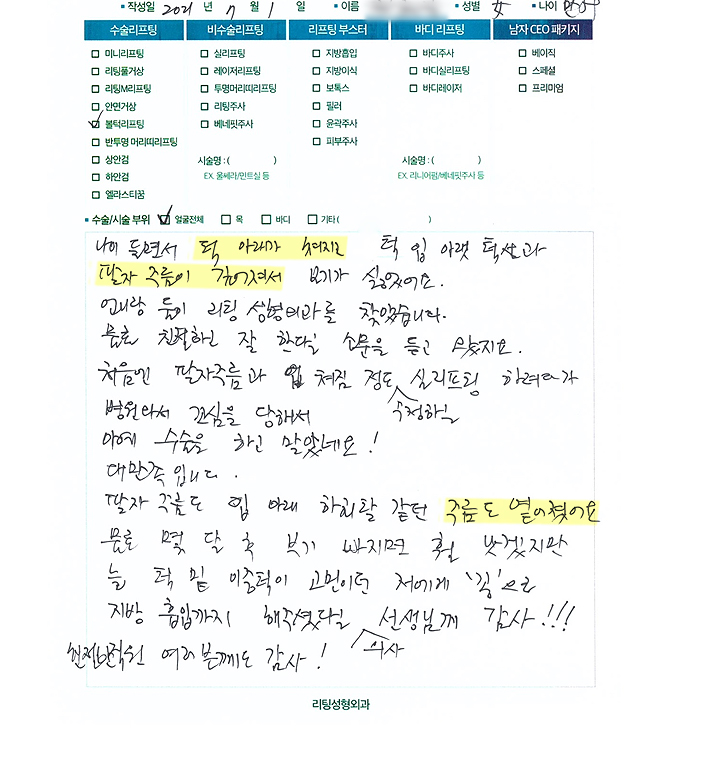 • 작성일 2021 년 7 월 1 일 • 이름 • 성별 女 • 나이
수술리프팅 비수술리프팅 리프팅 부스터 바디 리프팅 남자 CEO 패키지
미니리프팅 실리프팅 지방흡입 바디주사 베이직
리팅풀거상 레이저리프팅 지방이식 바디실리프팅 스페셜
리팅M리프팅 투명머리띠리프팅 보톡스 바디레이저 프리미엄
안면거상 리팅주사 필러
볼턱리프팅 베네핏주사 윤곽주사
반투명 머리띠리프팅 피부주사
상안검 시술명 : ( ) 시술명 : ( )
하안검 EX. 울쎄라/민트실 등 EX. 리니어펌/베네핏주사 등
엘라스티꿈
• 수술/시술 부위 얼굴전체 목 바디 기타 (  )
나이 들면서 턱 아래가 쳐지고 턱 입 아랫 턱선과
팔자 주름이 깊어져서 보기가 싫었어요.
언니랑 둘이 리팅 성형외과를 찾았습니다.
물론 친절하고 잘 한다는 소문을 듣고 왔지요.
처음엔 팔자주름과 입 쳐짐 정도 실리프팅 하려다가
병원와서 관심을 당해서 수정하실
아예 수술을 하고 말았네요!
대만족입니다.
팔자 주름도 입 아래 하회탈 같던 주름도 옅어졌어요
물론 몇 달 후 붓기 빠지면 훨 낫겠지만
늘 턱 밑 이중턱이 고민이던 저에게 '꽁'으로
지방 흡입까지 해주셨다는 선생님께 감사!!!
의사
여러분께도 감사!
리팅성형외과